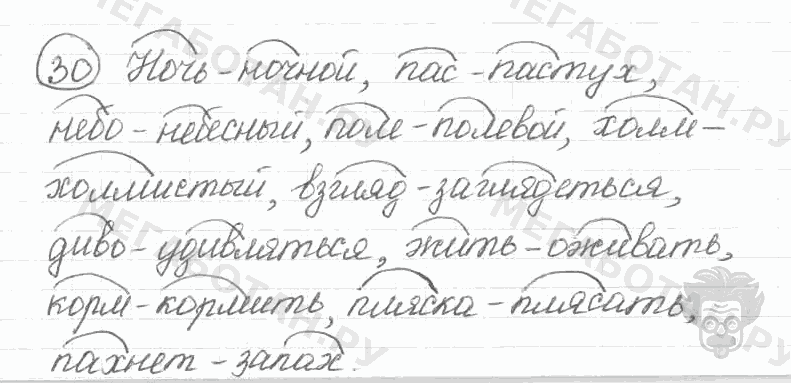 30 Ночь - ночной, пас - пастух,
небо - небесный, поле - полевой, холм -
холмистый, взгляд - заглядеться,
диво - удивляться, жить - оживать,
корм - кормить, пляска - плясать,
пахнет - запах.
МЕГАБОТАН.РУ